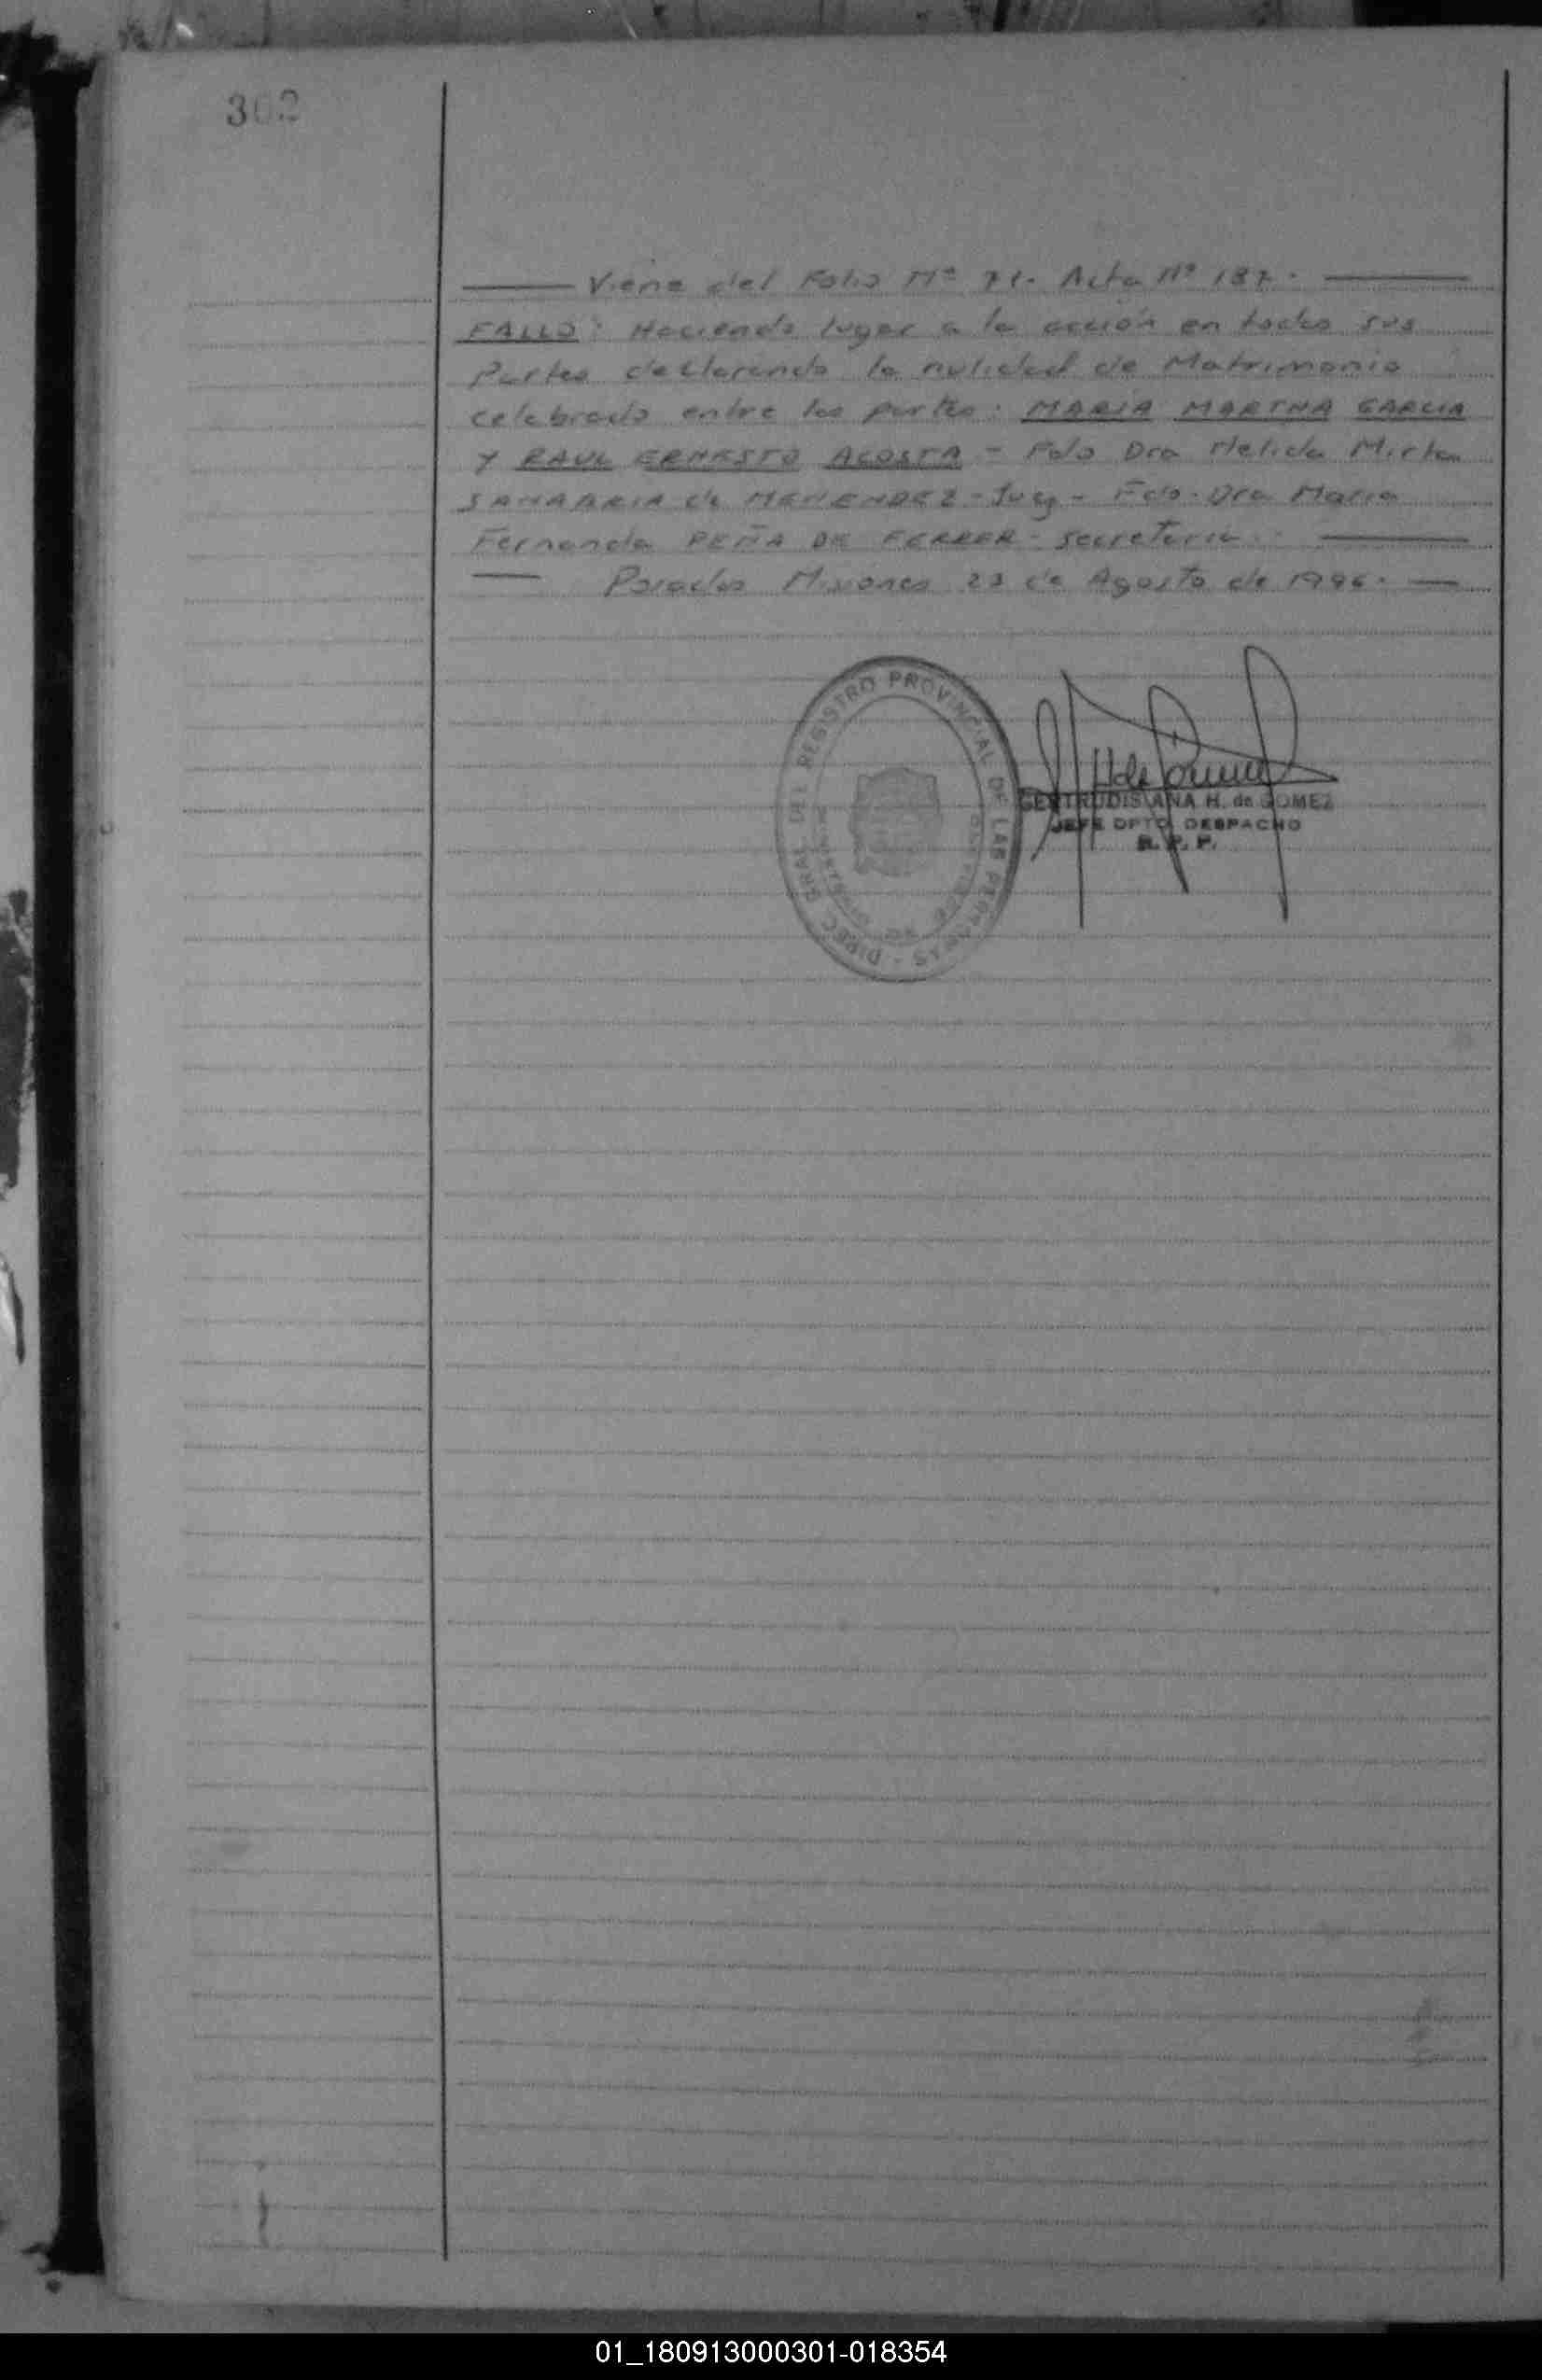 302
Viene del Folio Nº 71. Acta Nº 187.
FALLO: Haciendo lugar a la acción en todas sus
Partes declarando la nulidad de Matrimonio
celebrado entre las partes: MARIA MARTHA GARCIA
Y RAUL ERNESTO ACOSTA - Fdo Dra Mirta
SANABRIA de MENENDEZ - Juez - Fdo. Dra Maria
Fernanda PEÑA DE FERRER - secretaria.
Posadas Misiones 23 de Agosto de 1996.
DIREC. GRAL. DEL REGISTRO PROVINCIAL DE LAS PERSONAS
H de Gomez
GERTRUDIS ANA H. de GOMEZ
JEFE DPTO. DESPACHO
R. P. P.
01_180913000301-018354